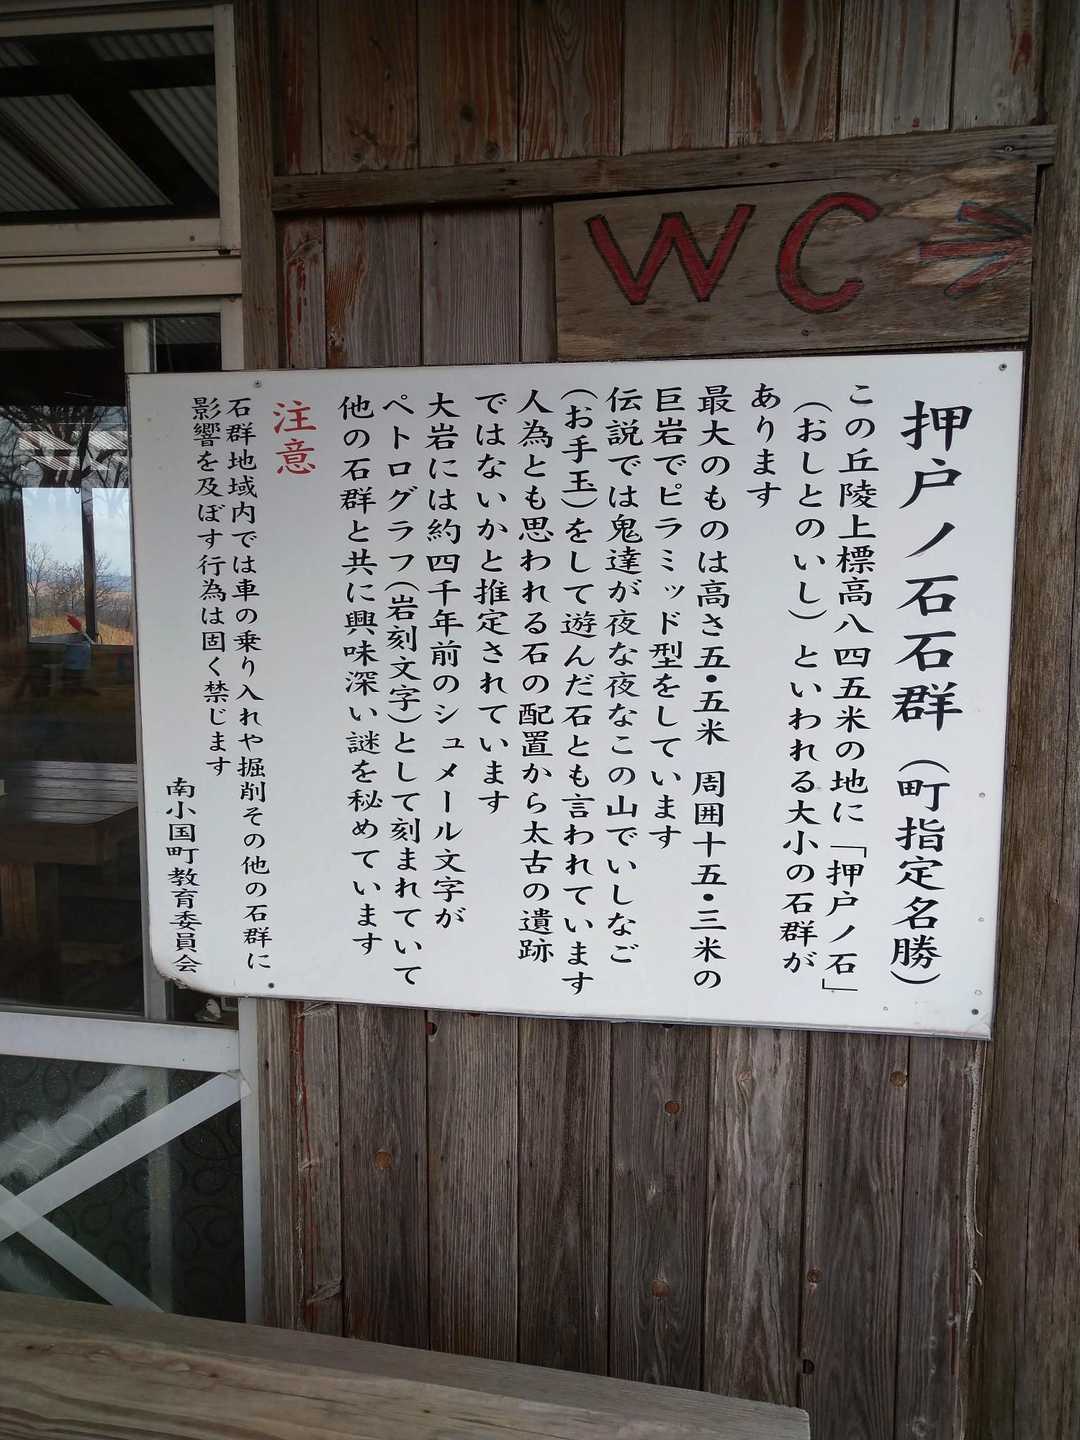 WC
押戸ノ石石群（町指定名勝）
この丘陵上標高八四五米の地に「押戸ノ石」
（おしとのいし）といわれる大小の石群が
あります
最大のものは高さ五・五米 周囲十五・三米の
巨岩でピラミッド型をしています
伝説では鬼達が夜な夜なこの山でいしなご
（お手玉）をして遊んだ石とも言われています
人為とも思われる石の配置から太古の遺跡
ではないかと推定されています
大岩には約四千年前のシュメール文字が
ペトログラフ（岩刻文字）として刻まれていて
他の石群と共に興味深い謎を秘めています
注意
石群地域内では車の乗り入れや掘削その他の石群に
影響を及ぼす行為は固く禁じます
南小国町教育委員会